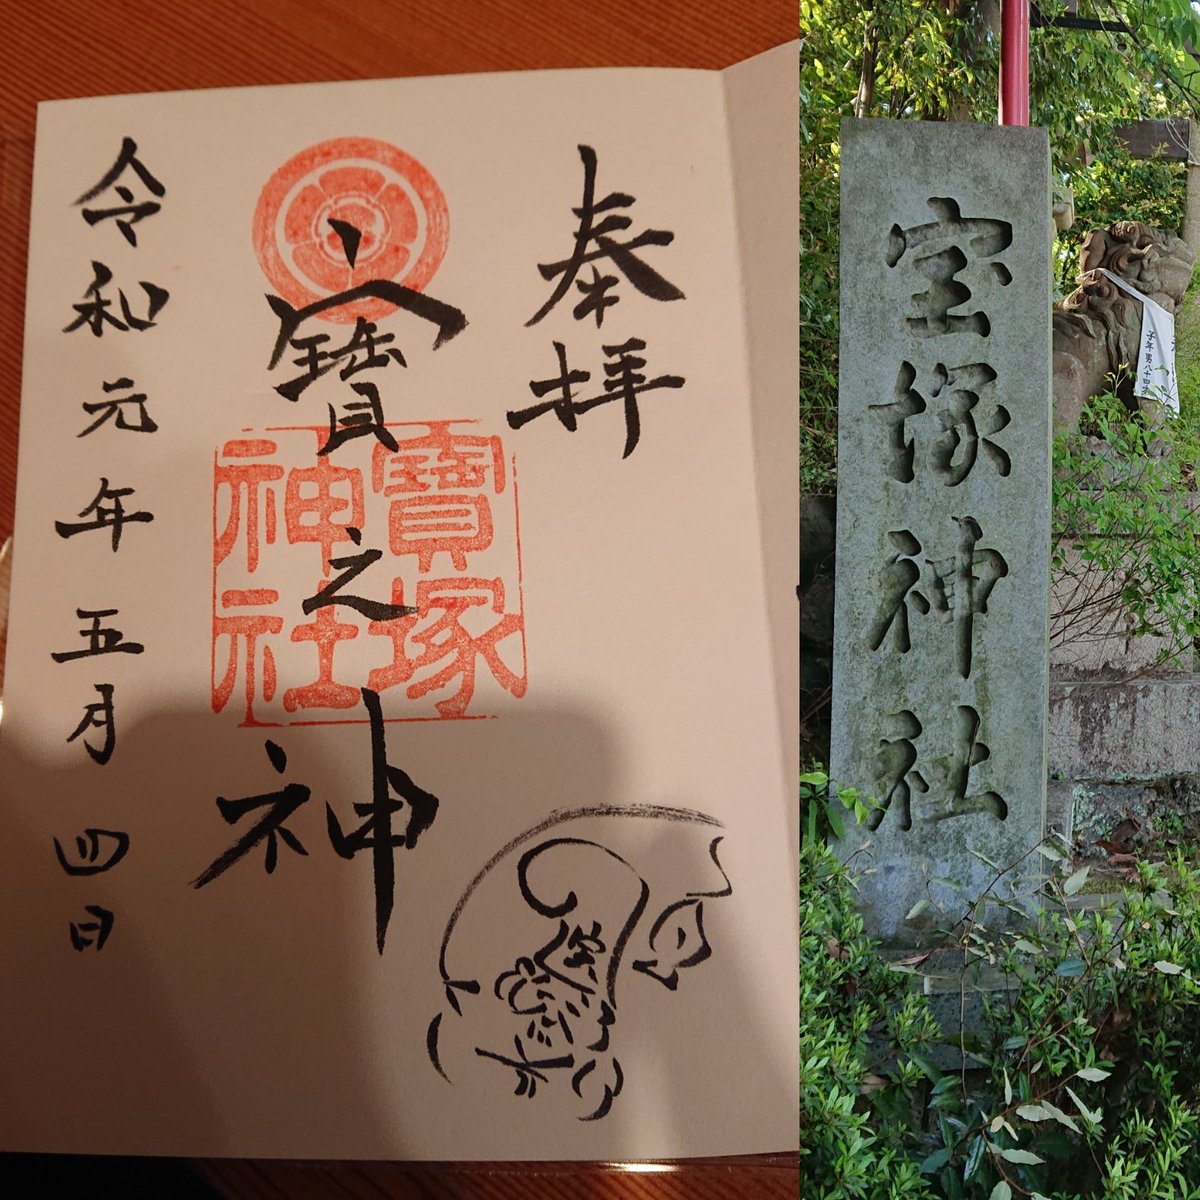 奉拝
寳之神
寳塚
神社
令和元年五月四日
宝塚神社
子年男八十四才